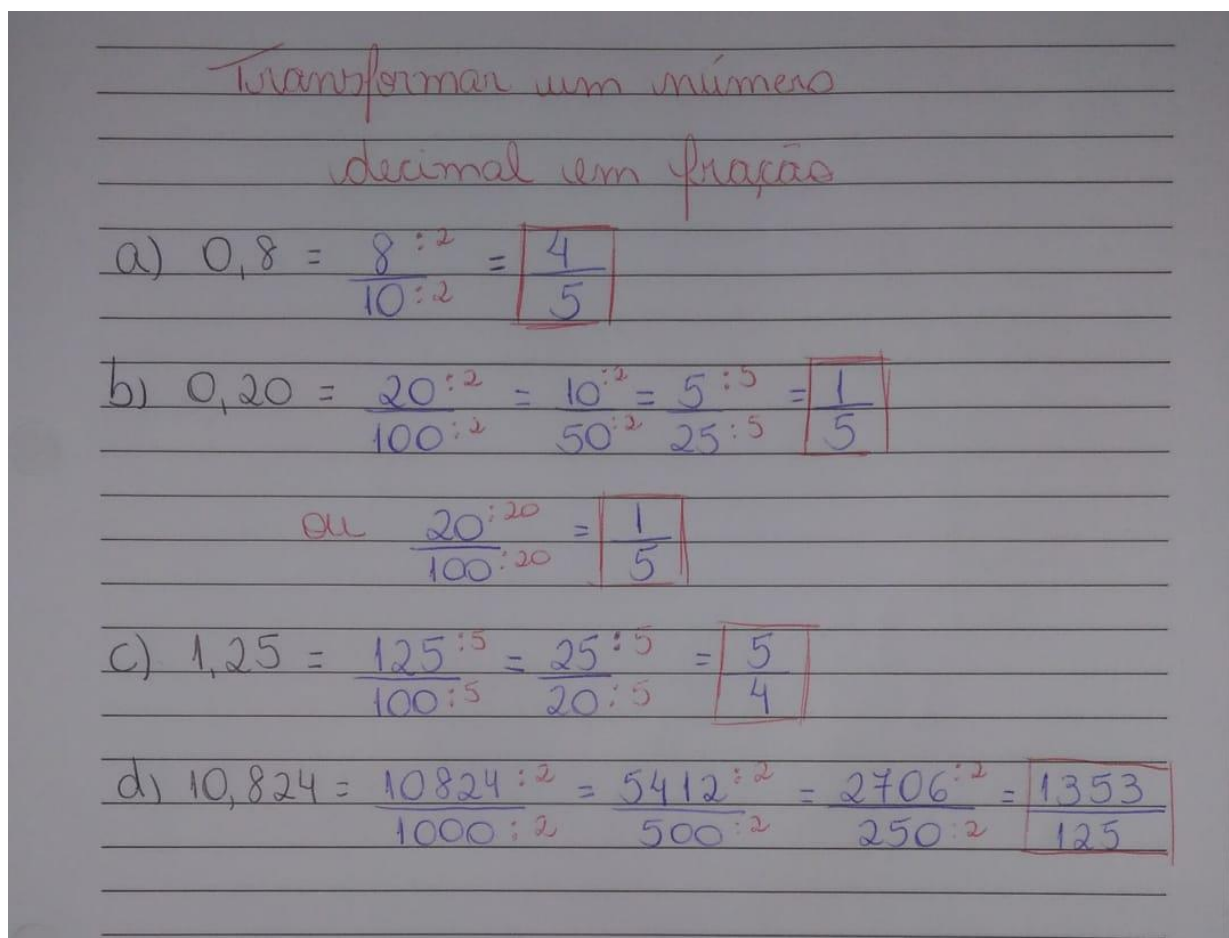 Transformar um número
decimal em fração
a) 0,8 = 8:2/10:2 = 4/5
b) 0,20 = 20:2/100:2 = 10:2/50:2 = 5:5/25:5 = 1/5
ou 20:20/100:20 = 1/5
c) 1,25 = 125:5/100:5 = 25:5/20:5 = 5/4
d) 10,824 = 10824:2/1000:2 = 5412:2/500:2 = 2706:2/250:2 = 1353/125